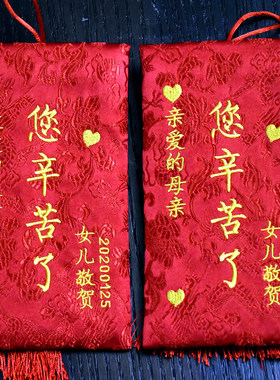 您辛苦了
女儿敬贺
20200125
亲爱的母亲
您辛苦了
女儿敬贺